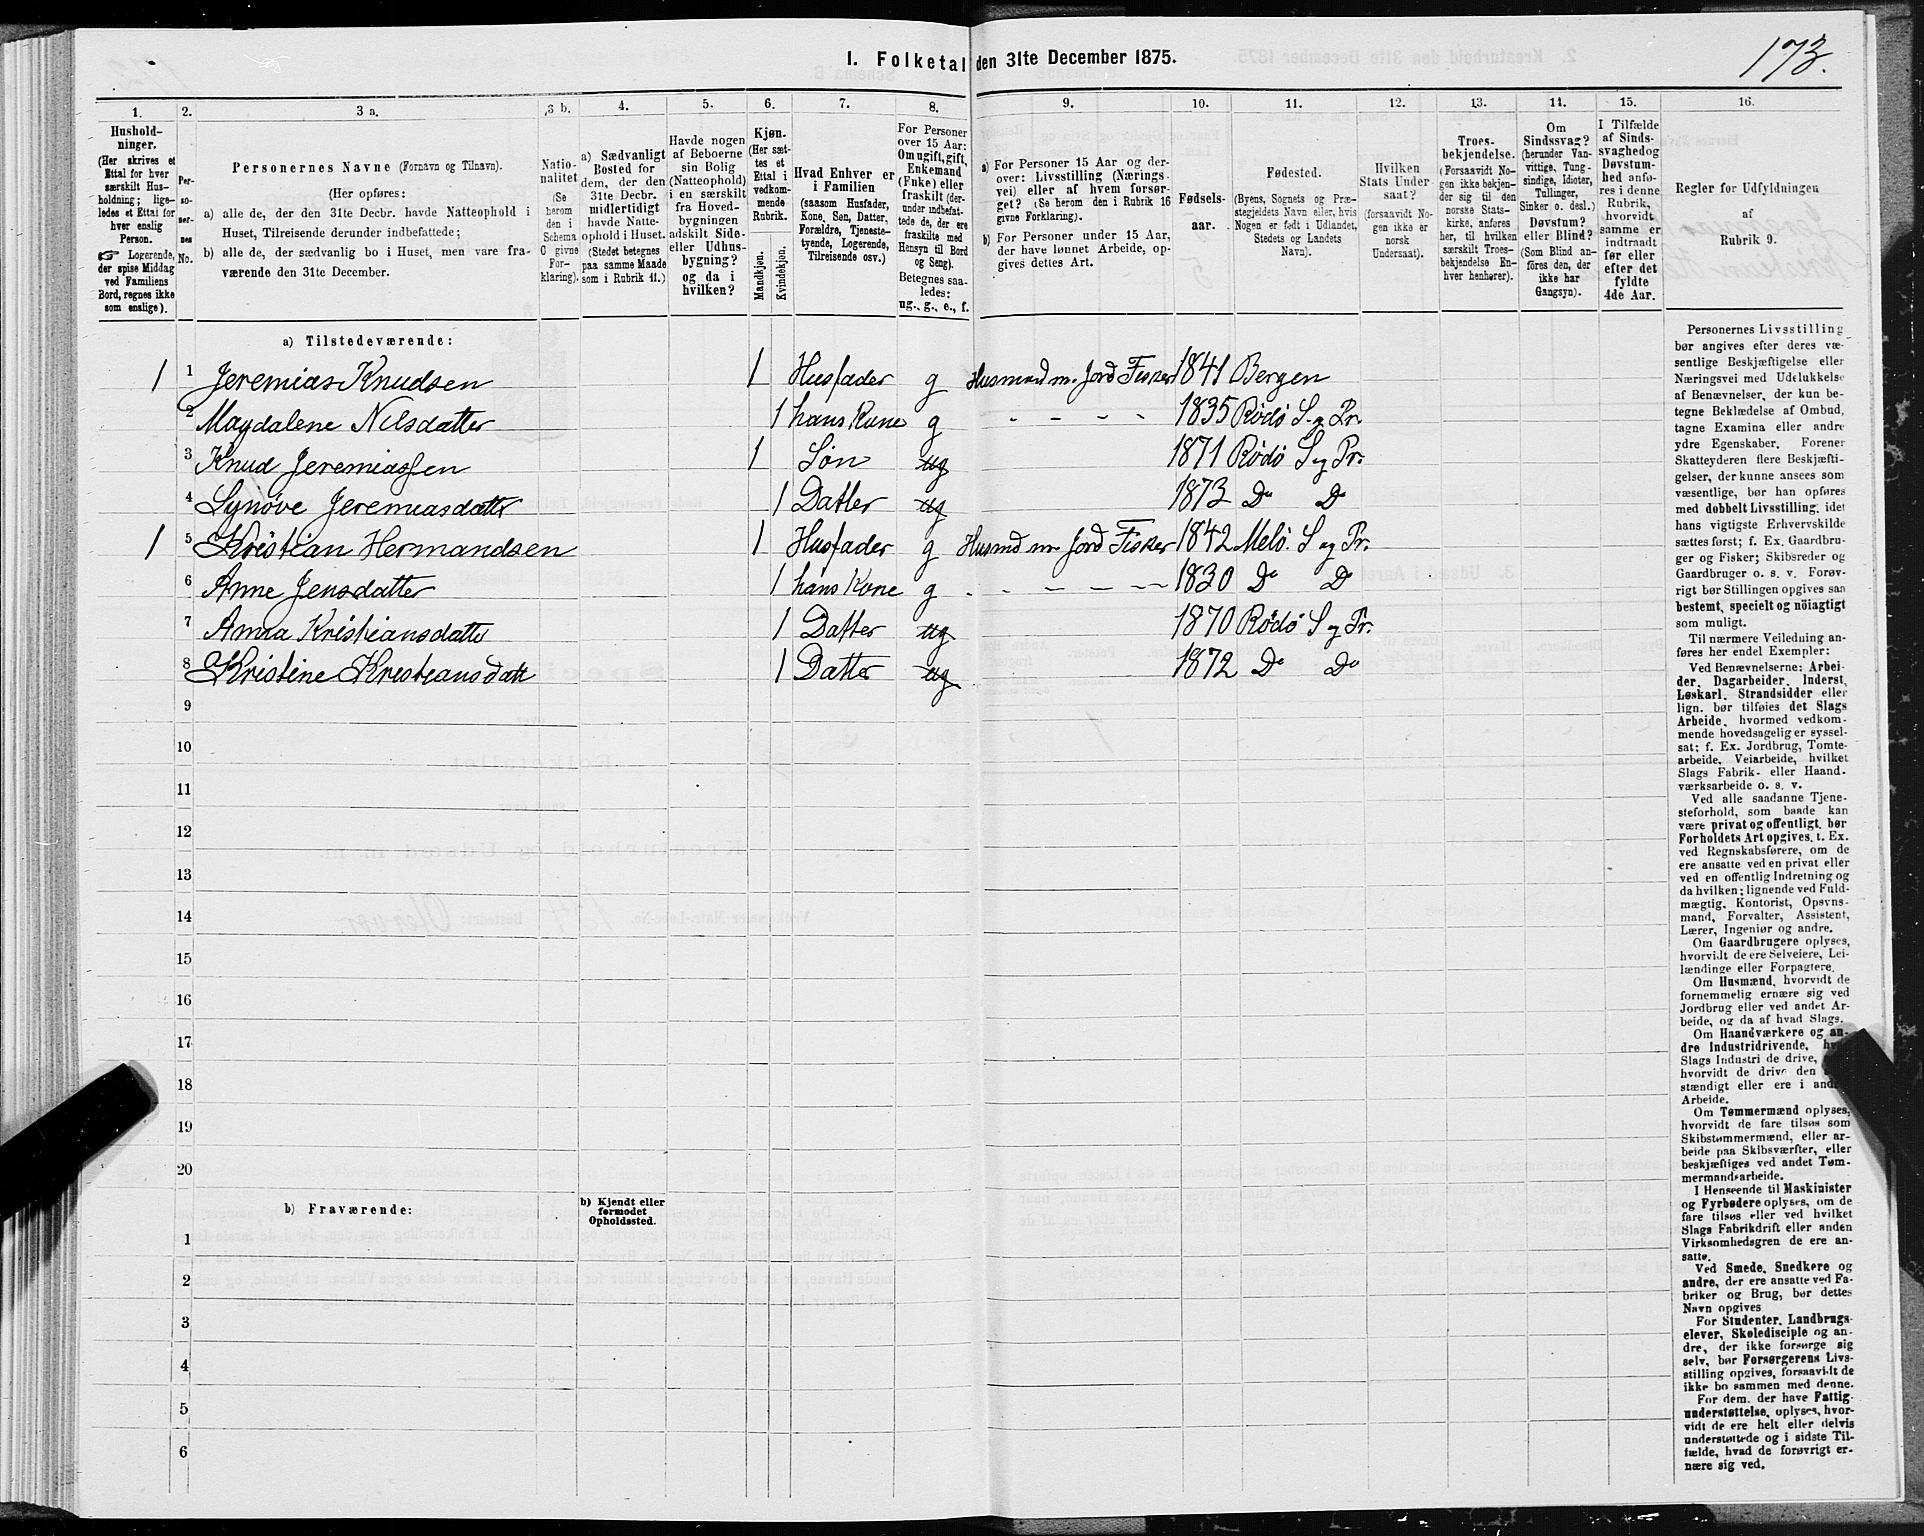 I. Folketal den 31te December 1875.
173.
1.
2.
3 a.
3 b.
4.
5.
6.
7.
8.
9.
10.
11.
12.
13.
14.
15.
16.
Hushold-
ninger.
(Her skrives et
Ettal for hver
særskilt Hus-
holdning; lige-
ledes et Ettal for
hver enslig
Person.
☞ Logerende,
der spise Middag
ved Familiens
Bord, regnes ikke
som enslige).
Per-
so-
nes
No.
Personernes Navne (Fornavn og Tilnavn).
(Her opføres:
a) alle de, der den 31te Decbr. havde Natteophold i
Huset, Tilreisende derunder indbefattede;
b) alle de, der sædvanlig bo i Huset, men vare fra-
værende den 31te December.
Natio-
nalitet
(Se
herom
den i
Schema
O givne
For-
klaring).
a) Sædvanligt
Bosted for
dem, der den
31te Decbr.
midlertidigt
havde Natte-
ophold i Huset.
(Stedet betegnes
paa samme Maade
som i Rubrik 11.)
Havde nogen
af Beboerne
sin Bolig
(Natteophold)
i en særskilt
fra Hoved-
bygningen
adskilt Side-
eller Udhus-
bygning?
og da i
hvilken?
Kjøn.
(Her sæt-
tes et
Ettal i
vedkom-
mende
Rubrik.
Mandkjøn.
Kvindekjøn.
Hvad Enhver er
i Familien
(saasom Husfader,
Kone, Søn, Datter,
Forældre, Tjeneste-
tyende, Logerende,
Tilreisende osv.)
For Personer
over 15 Aar:
Om ugift, gift,
Enkemand
(Enke) eller
fraskilt (der-
under indbefat-
tede de, der ere
fraskilte med
Hensyn til Bord
og Seng).
Betegnes saa-
ledes:
ug., g., e., f.
a) For Personer 15 Aar og der-
over: Livsstilling (Nærings-
vei) eller af hvem forsør-
get? (Se herom den i Rubrik 16
givne Forklaring).
b) For Personer under 15 Aar,
der have lønnet Arbeide, op-
gives dettes Art.
Fødsels-
aar.
Fødested.
(Byens, Sognets og Præ-
stegjeldets Navn eller, hvis
Nogen er født i Udlandet,
Stedets og Landets
Navn).
Hvilken
Stats Under-
saat?
(forsaavidt No-
gen ikke er
norsk
Undersaat).
Troes-
bekjendelse.
(Forsaavidt No-
gen ikke bekjen-
der sig til den
norske Stats-
kirke, anføres
her, til hvilken
særskilt Troes-
bekjendelse En-
hver henhører).
Om
Sindssvag?
(herunder Van-
vittige, Tung-
sindige, Idioter,
Tullinger,
Sinker o. desl.)
Døvstum?
eller Blind?
(Som Blind an-
føres den, der
ikke har
Gangsyn).
I Tilfælde
af Sinds-
svaghed og
Døvstum-
hed anfø-
res i denne
Rubrik,
hvorvidt
samme er
indtraadt
før eller
efter det
fyldte
4de Aar.
Regler for Udfyldningen
af
Rubrik 9.
a) Tilstedeværende:
1 1 Jeremias Knudsen 1 Husfader g Husmand m. Jord Fisker 1841 Bergen
2 Magdalene Nilsdatter 1 hans Kone g - - - - 1835 Rödö S. og Pr.
3 Knud Jeremiassen 1 Søn ug 1871 Rödö S og Pr.
4 Synøve Jeremiasdatter 1 Datter ug 1873 Do Do
1 5 Kristian Hermandsen 1 Husfader g Husmd m. Jord Fisker 1842 Melö. S og Pr.
6 Anne Jensdatter 1 hans Kone g - - - - - 1830 Do Do
7 Anna Kristiansdatter 1 Datter ug 1870 Rödö S og Pr.
8 Kristine Kristiansdatt 1 Datter ug 1872 Do Do
9
10
11
12
13
14
15
16
17
18
19
20
b) Fraværende:
b) Kjendt eller
formodet
Opholdssted.
1
2
3
4
5
6
Personernes Livsstilling
bør angives efter deres væ-
sentlige Beskjæftigelse eller
Næringsvei med Udelukkelse
af Benævnelser, der kun be-
tegne Beklædelse af Ombud,
tagne Examina eller andre
ydre Egenskaber. Forener
Skatteyderen flere Beskjæfti-
gelser, der kunne ansees som
væsentlige, bør han opføres
med dobbelt Livsstilling, idet
hans vigtigste Erhvervskilde
sættes først; f. Ex. Gaardbru-
ger og Fisker; Skibsreder og
Gaardbruger o. s. v. Forøv-
rigt bør Stillingen opgives saa
bestemt, specielt og nöiagtigt
som muligt.
Til nærmere Veiledning an-
føres her endel Exempler:
Ved Benævnelserne: Arbei-
der, Dagarbeider, Inderst,
Løskarl, Strandsidder eller
lign. bør tilføies det Slags
Arbeide, hvormed vedkom-
mende hovedsagelig er syssel-
sat; f. Ex. Jordbrug, Tomte-
arbeide, Veiarbeide, hvilket
Slags Fabrik- eller Haand-
værksarbeide o. s. v.
Ved alle saadanne Tjene-
steforhold, som baade kan
være privat og offentligt, bør
Forholdets Art opgives, t. Ex.
ved Regnskabsførere, om de
ere ansatte ved en privat eller
ved en offentlig Indretning og
da hvilken; lignende ved Fuld-
mægtig, Kontorist, Opsyns-
mand, Forvalter, Assistent,
Lærer, Ingeniør og andre.
Om Gaardbrugere oplyses,
hvorvidt de ere Selveiere, Lei-
lændinge eller Forpagtere.
Om Husmænd, hvorvidt de
fornemmelig ernære sig ved
Jordbrug eller ved andet Ar-
beide, og da af hvad Slags.
Om Haandværkere og an-
dre Industridrivende,
Slags Industri de drive,
hvorvidt de drive den
stændigt eller ere i
Arbeide.
Om Tømmermænd oplyses,
hvorvidt de fare tilsøs som
Skibstømmermænd, eller ar-
beide paa Skibsværfter, eller
beskjæftiges ved andet Tøm-
mermandsarbeide.
I Henseende til Maskinister
og Fyrbødere oplyses, om de
fare tilsøs eller ved hvilket
Slags Fabrikdrift eller anden
Virksomhedsgren de ere an-
satte.
Ved Smede, Snedkere og
andre, der ere ansatte ved Fa-
briker og Brug, bør dettes
Navn opgives
For Studenter, Landbrugs-
elever, Skoledisciple og an-
dre, der ikke forsørge sig
selv, bør Forsørgerens Livs-
stilling opgives, forsaavidt de
ikke bo sammen med denne.
For dem, der have Fattig-
understøttelse, oplyses, hvor-
vidt de ere helt eller delvis
understøttede og i sidste Til-
fælde, hvad de forøvrigt er-
nære sig ved.